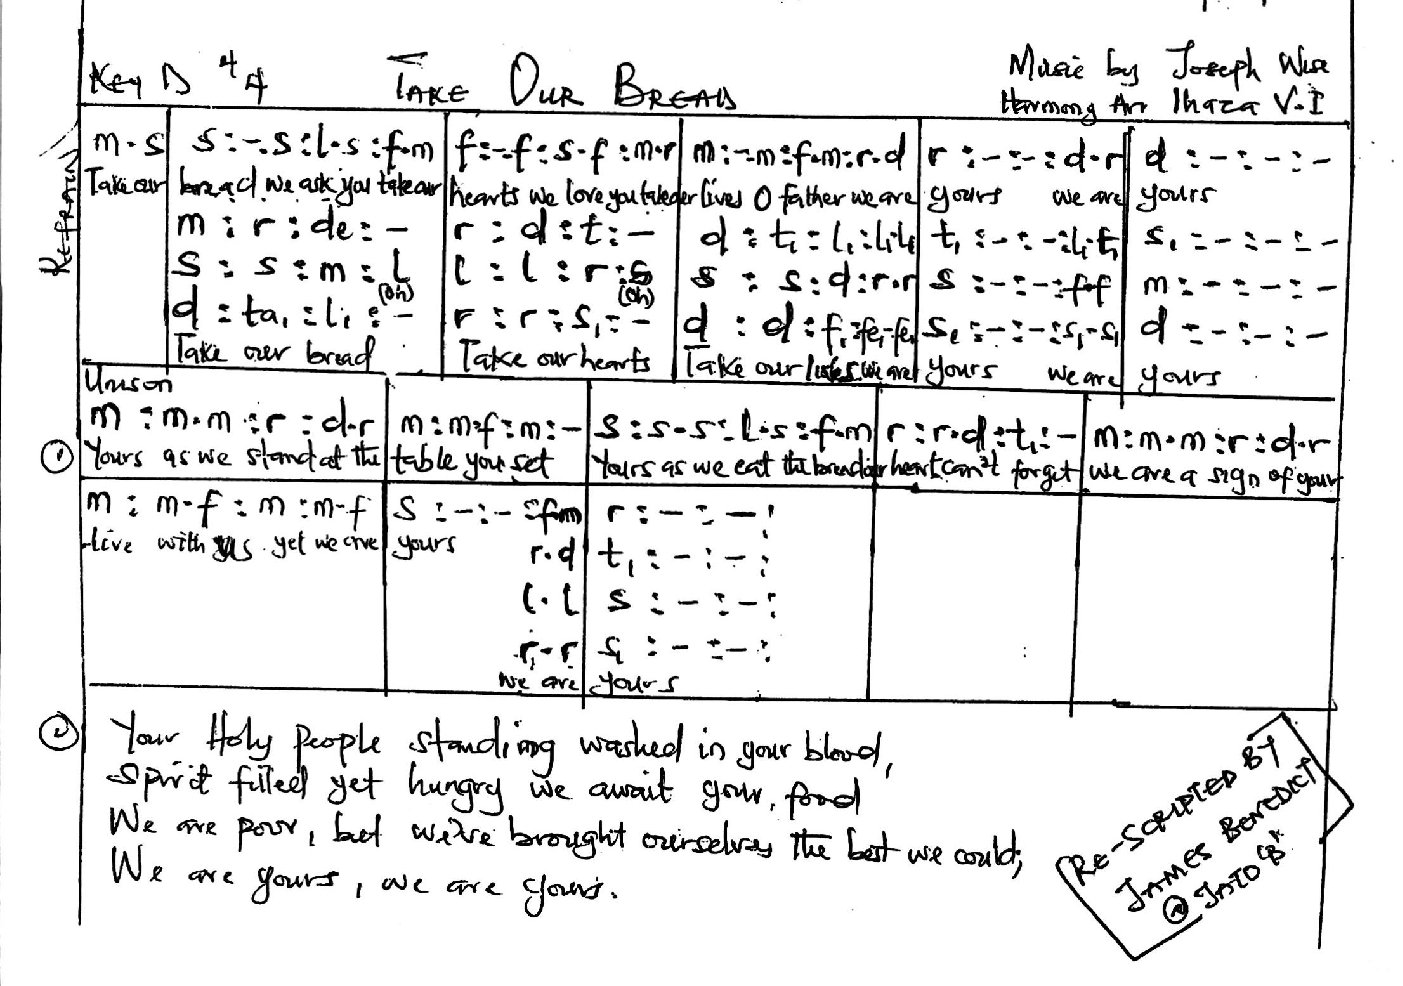 Key D 4/4 TAKE OUR BREAD Music by Joseph Wise
Harmony Arr Ihaza V.I
REFRAIN
m.s | s:-.s:l.s:f.m | f:-.f:s.f:m.r | m:-.m:f.m:r.d | r:-:-:d.r | d:-:-:-
Take our | bread we ask you take our | hearts we love you take our | lives O father we are | yours we are | yours
m:r:de:- | r:d:t:- | d:t₁:l₁:l₁.l₁ | t₁:-:-:l₁.t₁ | s₁:-:-:-
s:s:m:l | l:l:r:s | s:s:d:r.r | s:-:-:f.f | m:-:-:-
(oh) (oh)
d:ta₁:l₁:- | r:r:s₁:- | d:d:f₁:fe₁.fe₁ | s₁:-:-:s₁.s₁ | d:-:-:-
Take our bread | Take our hearts | Take our lives we are | yours we are | yours
Unison
m:m.m:r:d.r | m:m.f:m:- | s:s.s:l.s:f.m | r:r.d:t₁:- | m:m.m:r:d.r
① Yours as we stand at the | table you set | Yours as we eat the bread our | heart can't forget | we are a sign of your
m:m.f:m:m.f | s:-:-:f.m | r:-:-:
live with us yet we are | yours
r.d | t₁:-:-:
l.l | s:-:-:
r₁.r | s₁:-:-:
we are | yours
② Your Holy people standing washed in your blood,
Spirit filled yet hungry we await your food
We are poor, but we've brought ourselves the best we could;
We are yours, we are yours.
RE-SCRIPTED BY
JAMES BENEDICT
@ JATO "B"